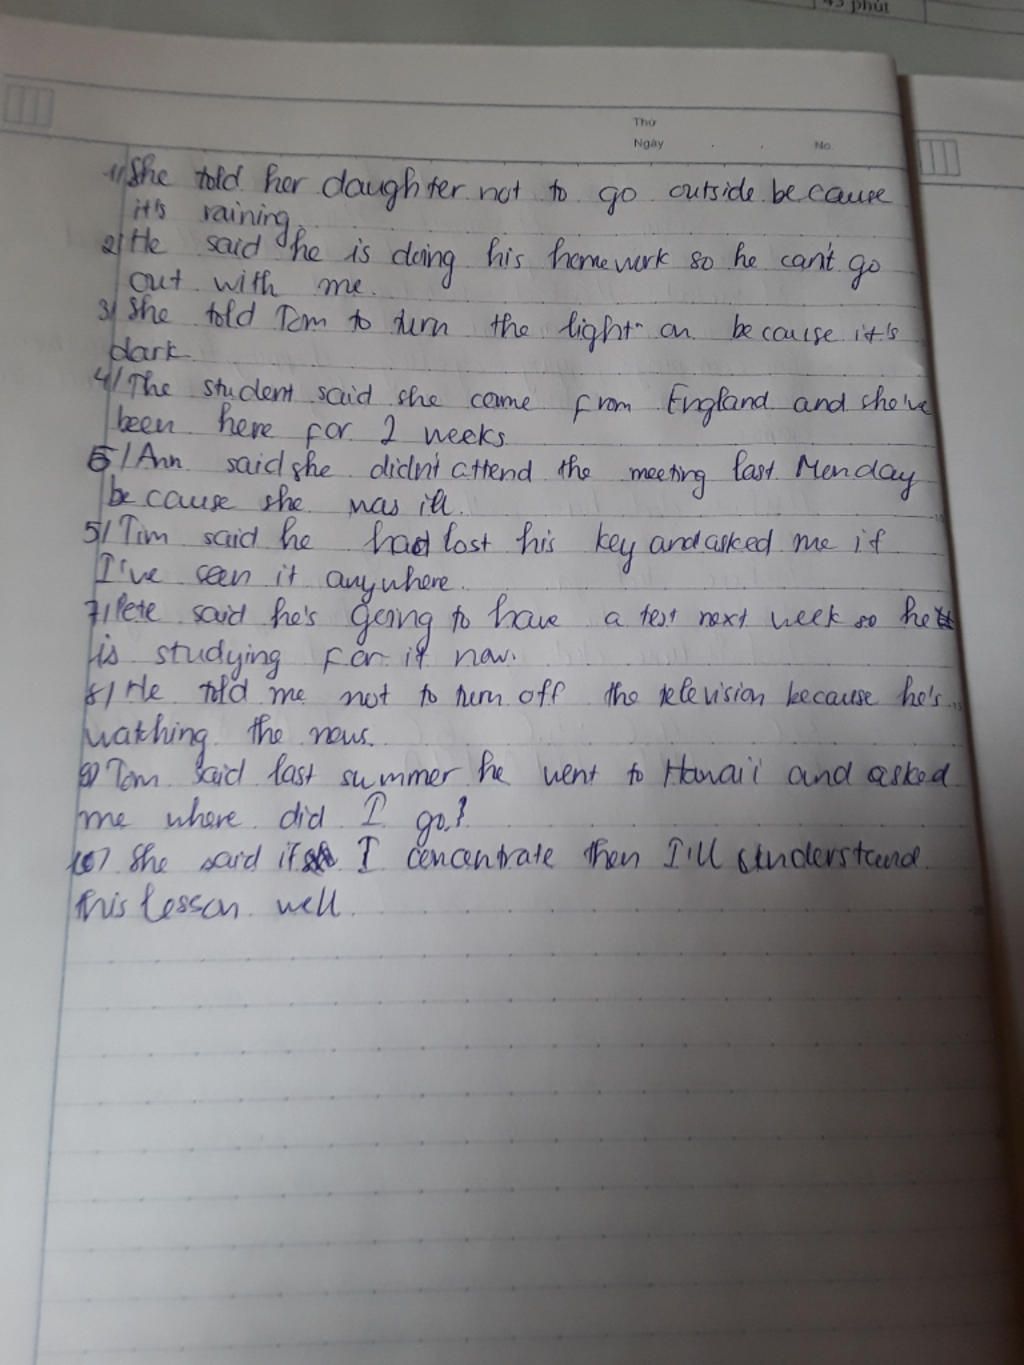 45 phút
Thứ
Ngày . . No.
1/ She told her daughter not to go outside because
it's raining
2/ He said he is doing his homework so he can't go
out with me.
3/ She told Tom to turn the light on because it's
dark
4/ The student said she came from England and she've
been here for 2 weeks
5/ Ann said she didn't attend the meeting last Monday
because she was ill.
5/ Tim said he had lost his key and asked me if
I've seen it anywhere.
7/ Pete said he's going to have a test next week so he
is studying for it now.
8/ He told me not to turn off the television because he's
watching the news.
9) Tom said last summer he went to Hawaii and asked
me where did I go?
10) She said if I concentrate then I'll understand
this lesson well.